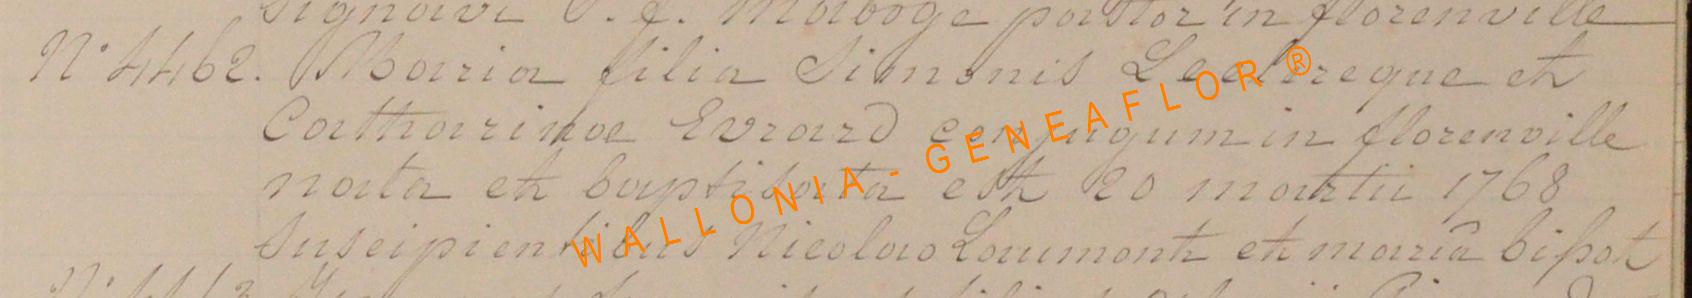 signavi P. J. Maboge pastor in florenville
N° 4462. Maria filia Simonis Leclreque et
Catharinae Evrard conjugum in florenville
nata et baptisata est 20 martii 1768
suscipientibus Nicolao Laumont et mariâ bihot
WALLONIA - GENEAFLOR ®